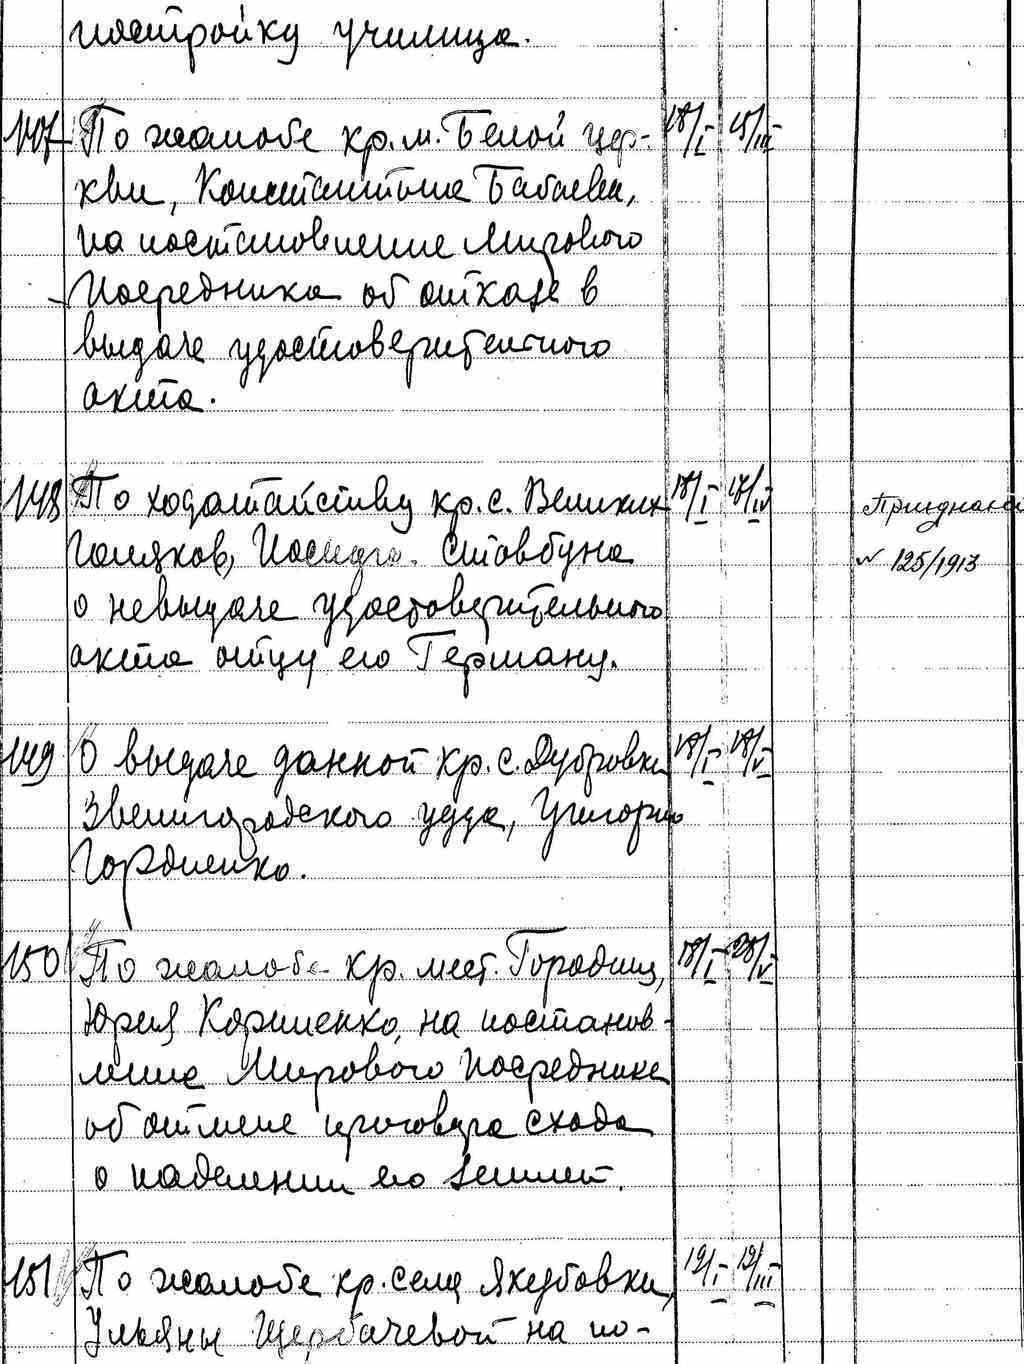 постройку училища.
147 По жалобе кр. м. Белой Цер- 18/I 15/III
кви, Константина Бабаева,
на постановление Мирового
Посредника об отказе в
выдаче удостоверительного
акта.
148 По ходатайству кр. с. Великих 18/I 17/IV
Стовбуна № 125/1913
о невыдаче удостоверительного
акта отцу его Герману.
149 О выдаче данной кр. с. Дубровки 18/I 18/V
Звенигородского уезда, Григорию
Гордиенко.
150 По жалобе кр. мест. Городищ, 18/I 28/V
Юрия Корниенко, на постанов-
ление Мирового Посредника
об отмене приговора схода
о наделении его землей.
151 По жалобе кр. села Якубовки, 19/I 19/III
Ульяны Щербачевой на по-